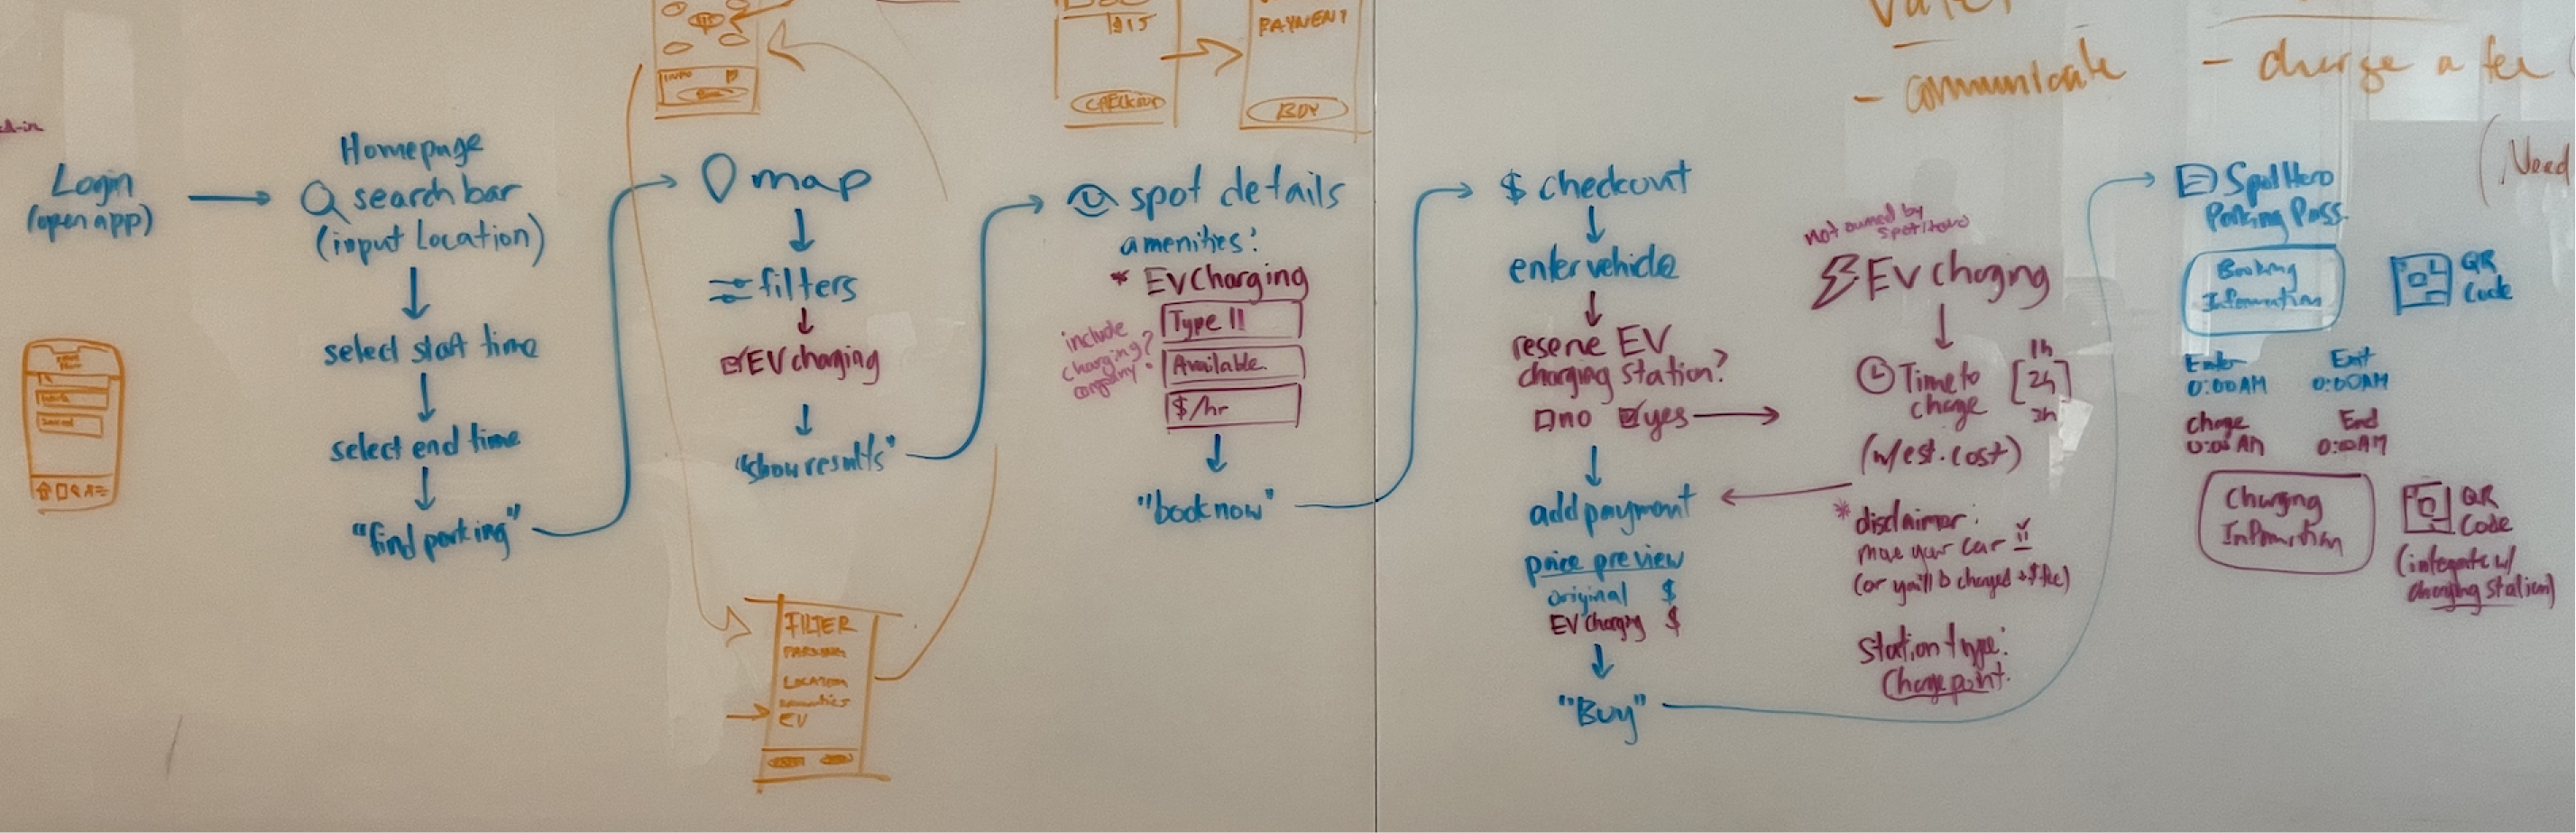 $15
CHECKOUT
PAYMENT
BUY
- communicate
- charge a fee
(Need
Login
(open app)
Homepage
search bar
(input Location)
select start time
select end time
"find parking"
map
filters
EV charging
"show results"
FILTER
PARKING
LOCATION
Amenities
EV
spot details
amenities:
* EV Charging
include
charging
company?
Type II
Available
$/hr
"book now"
$ checkout
enter vehicle
reserve EV
charging station?
no yes
add payment
price preview
original $
EV charging $
"Buy"
not owned by
SpotHero
EV charging
Time to
charge
1h
2h
3h
(w/est. cost)
* disclaimer:
move your car !!
(or you'll b charged + $ fee)
Station type:
Chargepoint.
SpotHero
Parking Pass
Booking
Information
QR
Code
Enter
0:00 AM
Exit
0:00 AM
charge
0:00 AM
End
0:00 AM
Charging
Information
QR
Code
(integrate w/
charging station)